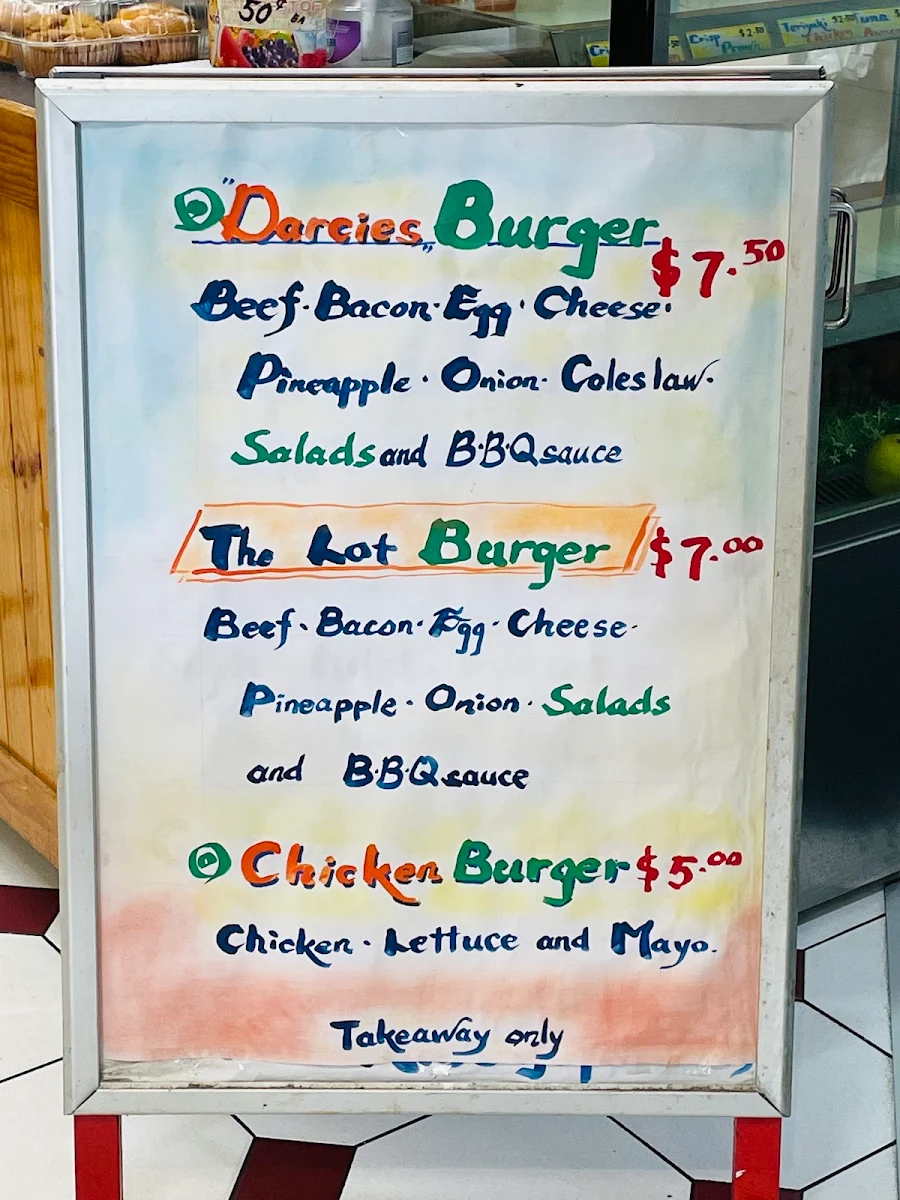 50¢
Crisp $2.50
Teriyaki
Chicken
"Darcies" Burger
$7.50
Beef · Bacon · Egg · Cheese ·
Pineapple · Onion · Coleslaw ·
Salads and B·B·Q sauce
The Lot Burger $7.00
Beef · Bacon · Egg · Cheese ·
Pineapple · Onion · Salads
and B·B·Q sauce
Chicken Burger $5.00
Chicken · Lettuce and Mayo.
Takeaway only